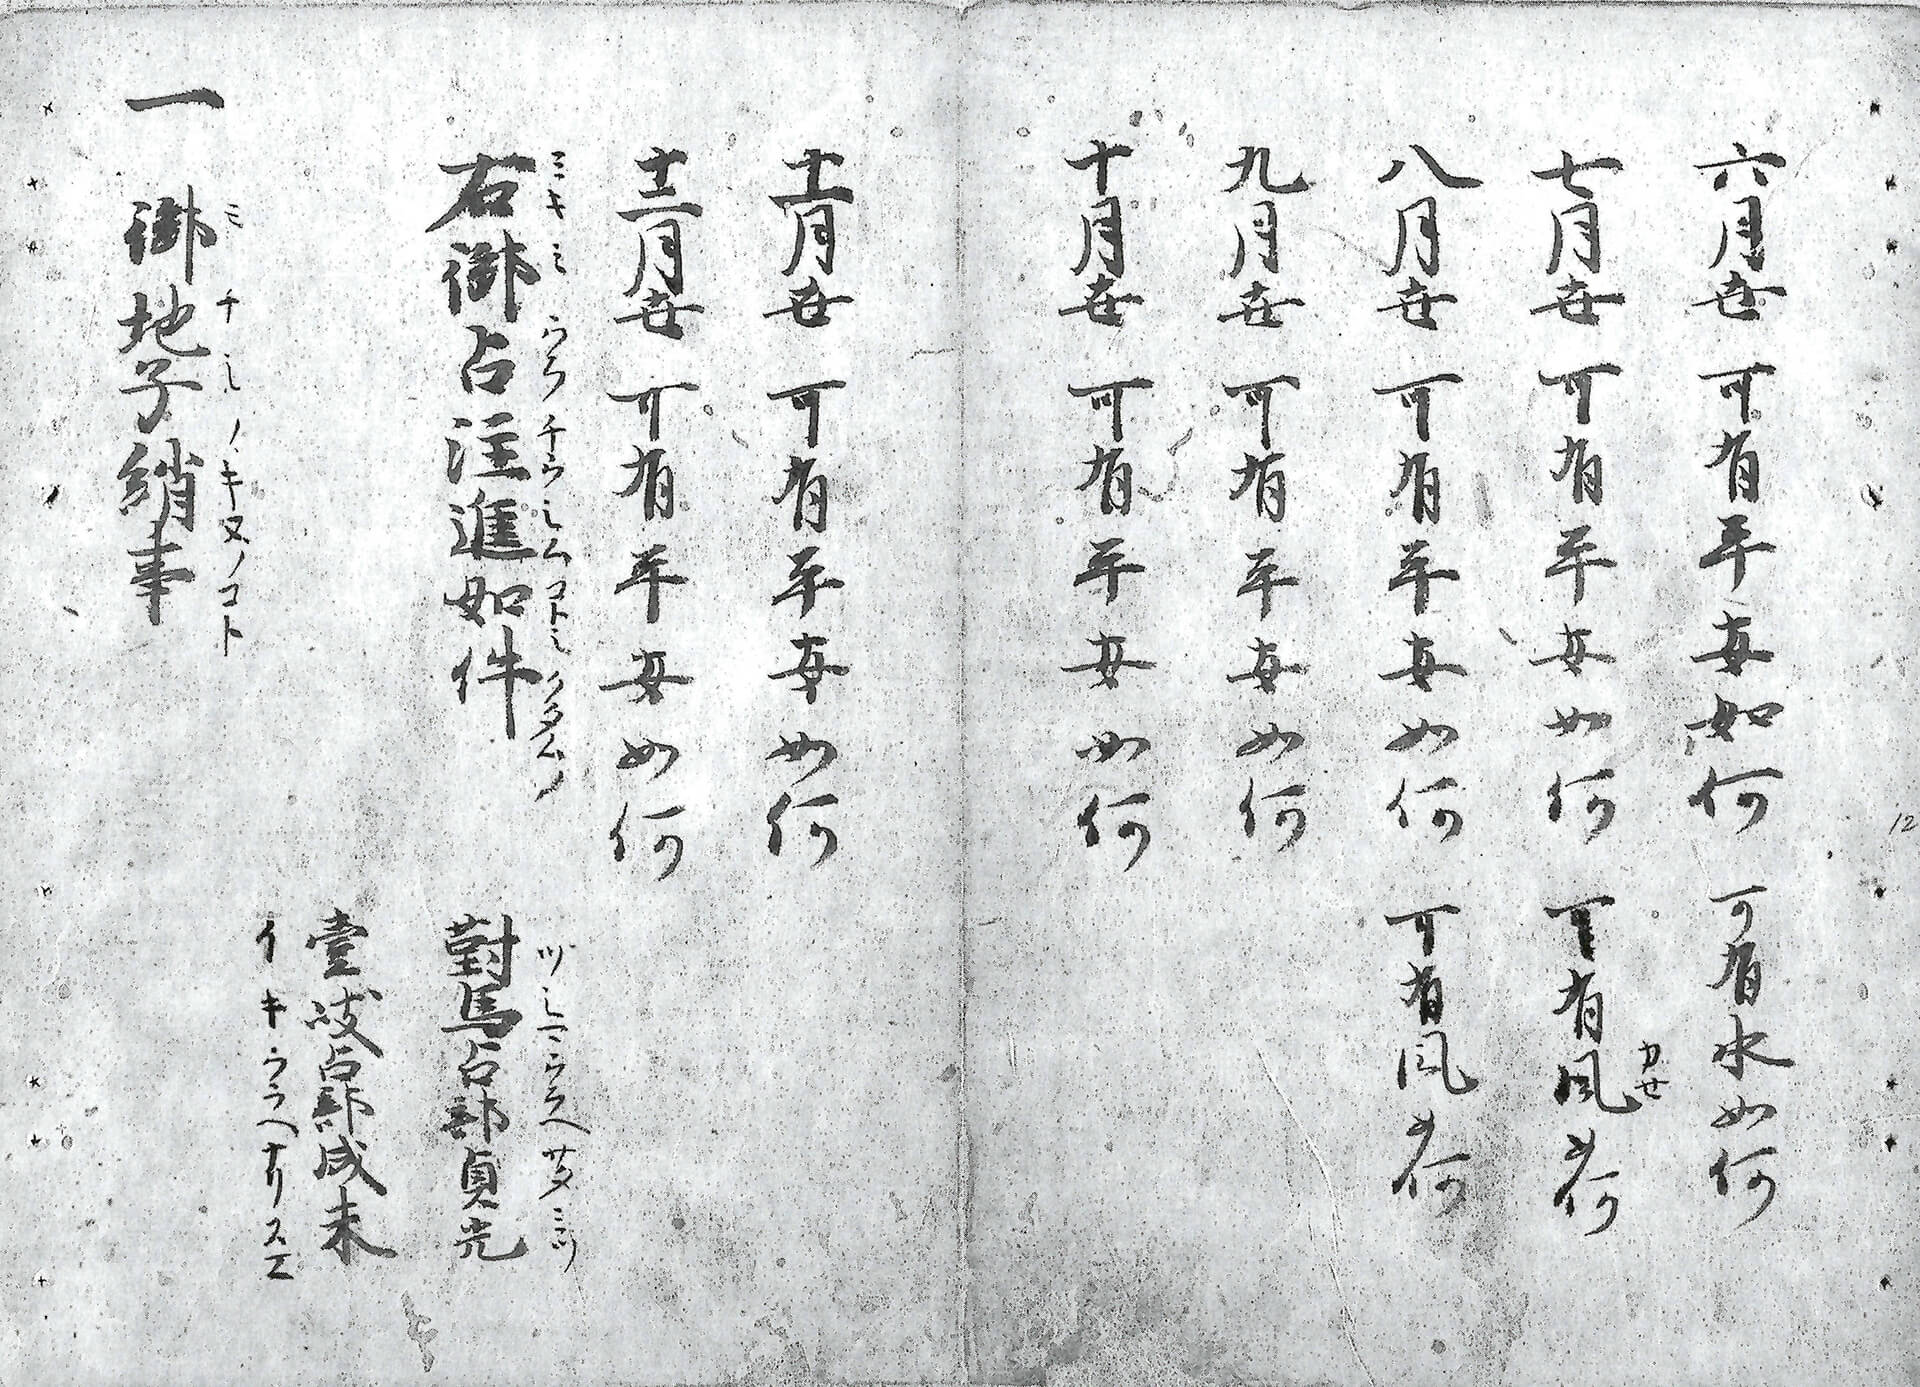 六月世 可有平安如何 可有水如何
七月世 可有平安如何 可有風如何
カせ
八月世 可有平安如何 可有風如何
九月世 可有平安如何
十月世 可有平安如何
12
十一月世 可有平安如何
十二月世 可有平安如何
右御占注進如件 對馬占部貞光
ミキミ ウラ チウシム コトシ クタムノ ツシマウラヘサタミツ
壹岐占部成末
イキウラヘナリスエ
一 御地子絹事
ミチシノキヌノコト